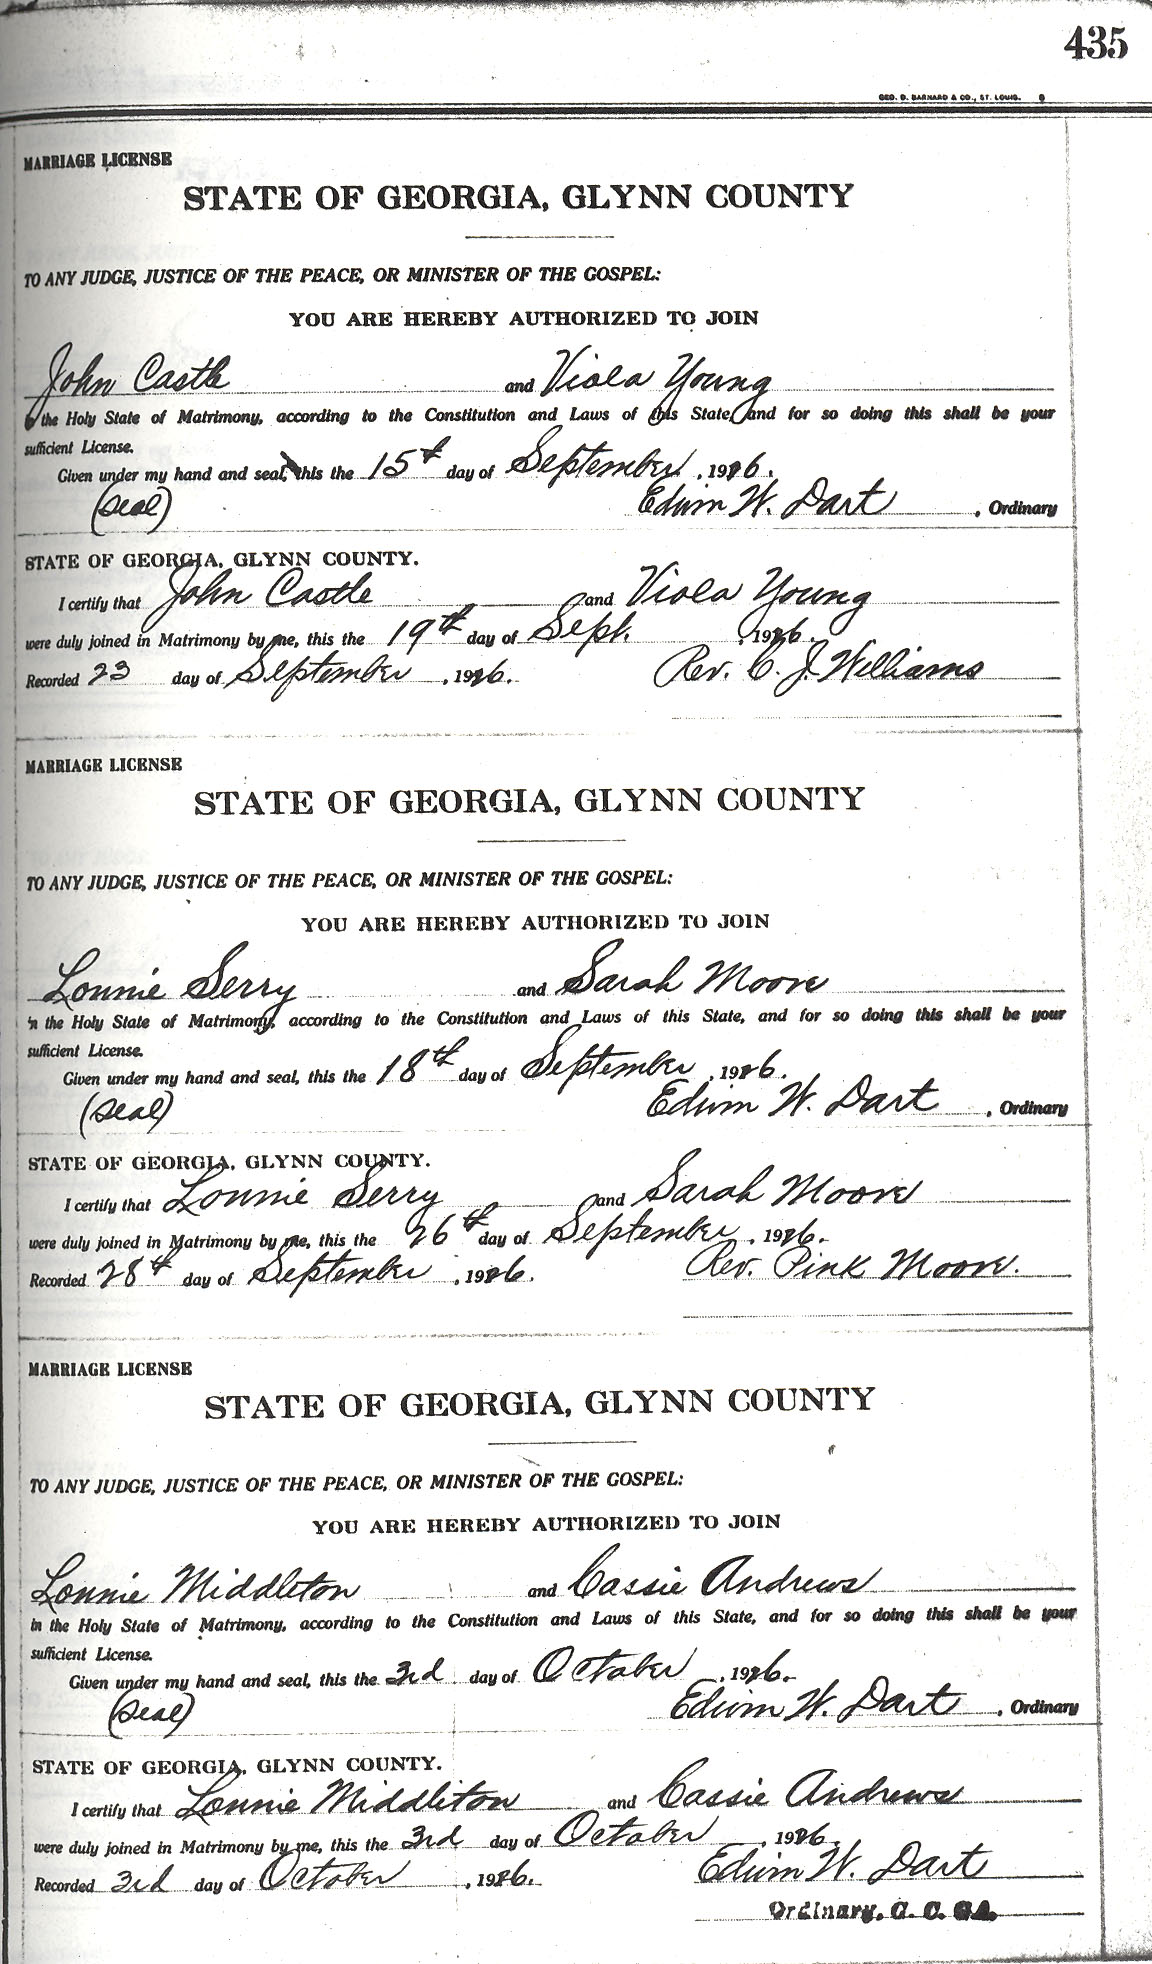 435
GEO. D. BARNARD & CO., ST. LOUIS.
MARRIAGE LICENSE
STATE OF GEORGIA, GLYNN COUNTY
TO ANY JUDGE, JUSTICE OF THE PEACE, OR MINISTER OF THE GOSPEL:
YOU ARE HEREBY AUTHORIZED TO JOIN
John Castle and Viola Young
in the Holy State of Matrimony, according to the Constitution and Laws of this State, and for so doing this shall be your
sufficient License.
Given under my hand and seal, this the 15th day of September, 1926.
(Seal) Edwin W. Dart, Ordinary
STATE OF GEORGIA, GLYNN COUNTY.
I certify that John Castle and Viola Young
were duly joined in Matrimony by me, this the 19th day of Sept. 1926.
Recorded 23 day of September, 1926. Rev. C. J. Williams
MARRIAGE LICENSE
STATE OF GEORGIA, GLYNN COUNTY
TO ANY JUDGE, JUSTICE OF THE PEACE, OR MINISTER OF THE GOSPEL:
YOU ARE HEREBY AUTHORIZED TO JOIN
Lonnie Serry and Sarah Moore
in the Holy State of Matrimony, according to the Constitution and Laws of this State, and for so doing this shall be your
sufficient License.
Given under my hand and seal, this the 18th day of September, 1926.
(Seal) Edwin W. Dart, Ordinary
STATE OF GEORGIA, GLYNN COUNTY.
I certify that Lonnie Serry and Sarah Moore
were duly joined in Matrimony by me, this the 26th day of September, 1926.
Recorded 28th day of September, 1926. Rev. Pink Moore.
MARRIAGE LICENSE
STATE OF GEORGIA, GLYNN COUNTY
TO ANY JUDGE, JUSTICE OF THE PEACE, OR MINISTER OF THE GOSPEL:
YOU ARE HEREBY AUTHORIZED TO JOIN
Lonnie Middleton and Cassie Andrews
in the Holy State of Matrimony, according to the Constitution and Laws of this State, and for so doing this shall be your
sufficient License.
Given under my hand and seal, this the 3rd day of October, 1926.
(Seal) Edwin W. Dart, Ordinary
STATE OF GEORGIA, GLYNN COUNTY.
I certify that Lonnie Middleton and Cassie Andrews
were duly joined in Matrimony by me, this the 3rd day of October, 1926.
Recorded 3rd day of October, 1926. Edwin W. Dart
Ordinary, G. C. GA.